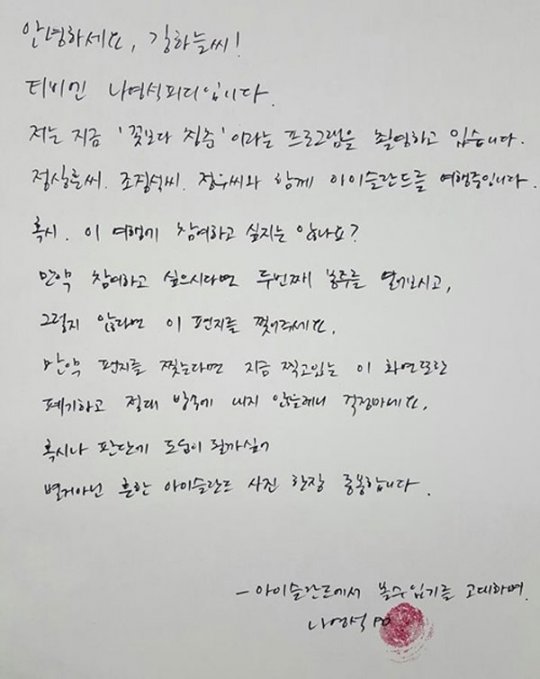 안녕하세요, 강하늘씨!
티비엔 나영석피디입니다.
저는 지금 '꽃보다 청춘' 이라는 프로그램을 촬영하고 있습니다.
정상훈씨. 조정석씨. 정우씨와 함께 아이슬란드를 여행중입니다.
혹시. 이 여행에 참여하고 싶지는 않나요?
만약 참여하고 싶으시다면 두번째 봉투를 열어보시고,
그렇지 않다면 이 편지를 찢어주세요.
만약 편지를 찢는다면 지금 찍고있는 이 화면또한
폐기하고 절대 방송에 내지 않을테니 걱정마세요.
혹시나 판단에 도움이 될까싶어
별거아닌 흔한 아이슬란드 사진 한장 동봉합니다.
- 아이슬란드에서 볼수있기를 고대하며.
나영석 PD